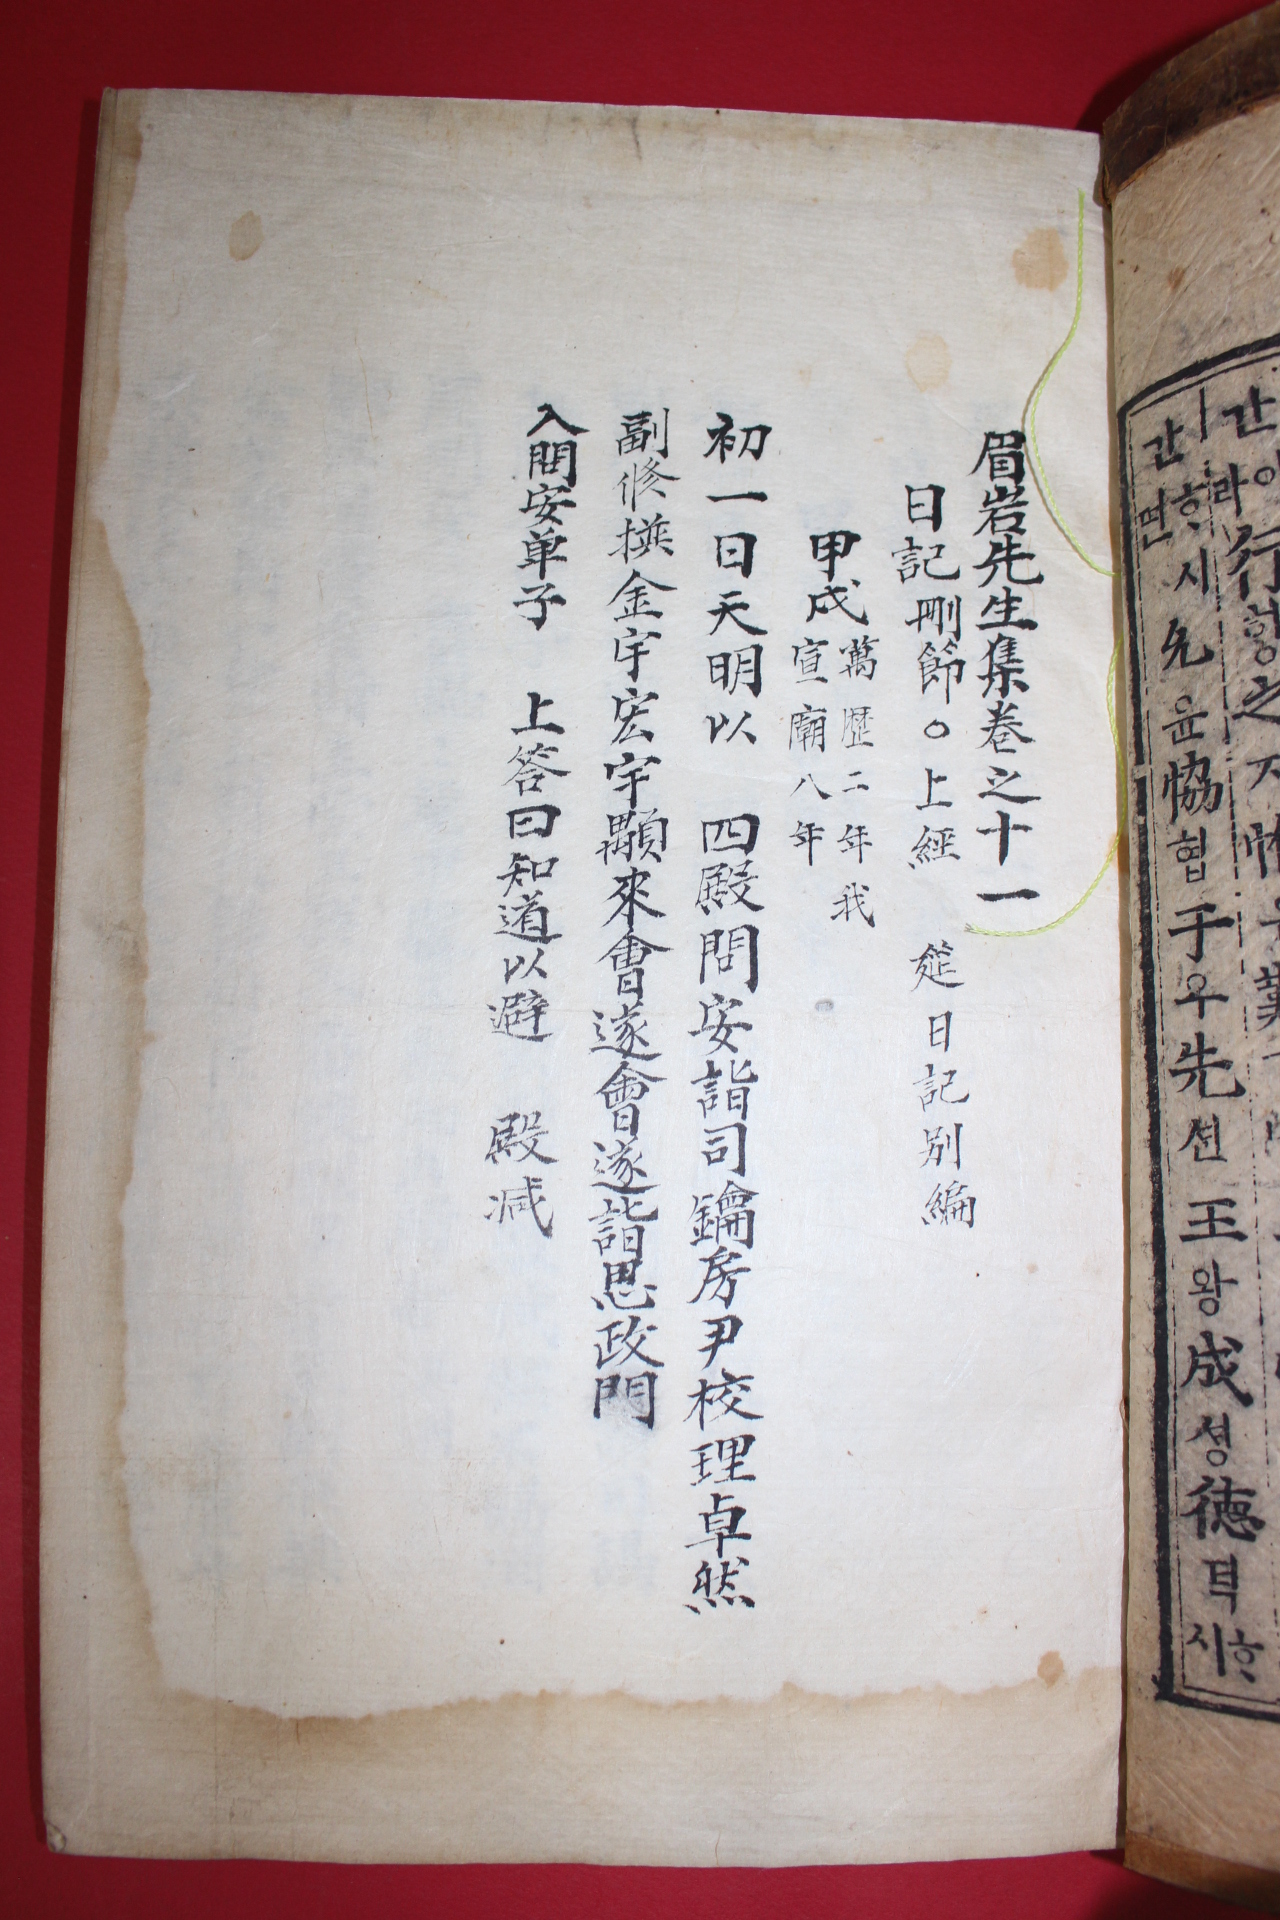 允윤恊협于우先션王왕成셩德덕ᄒᆞ시
眉岩先生集卷之十一
日記刪節○上經 筵日記别編
甲戌萬歷二年我
宣廟八年
初一日天明以 四殿問安詣司鑰房尹校理卓然
副修撰金宇宏宇顒來會遂會遂詣思政門
入問安单子 上答曰知道以避 殿减